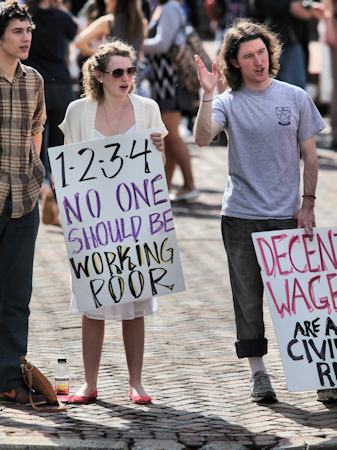 1-2-3-4
NO ONE
SHOULD BE
WORKING
POOR
DECENT
WAGE
ARE A
CIVI
RI